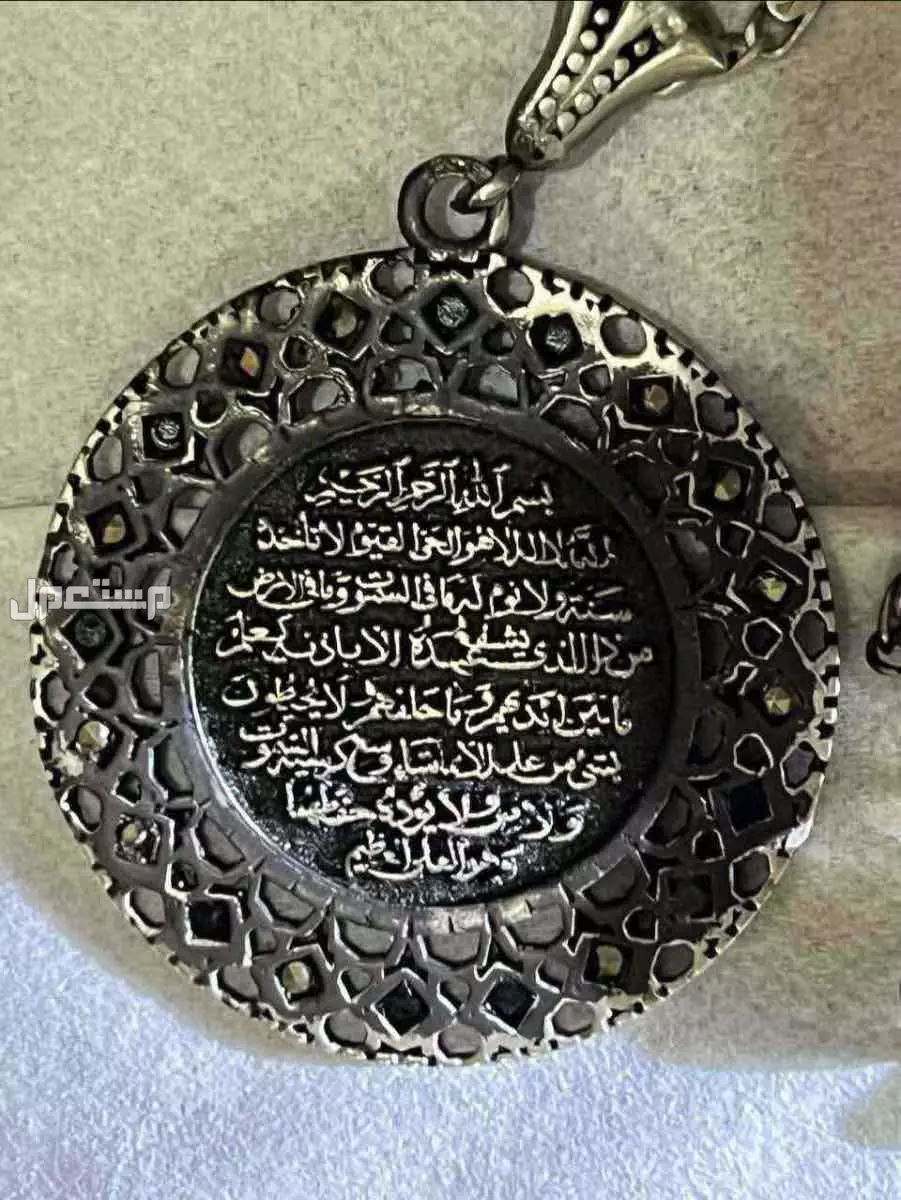 بسم الله الرحمن الرحيم
الله لا اله الا هو الحي القيوم لا تأخذه
سنة ولا نوم له ما في السموات وما في الارض
من ذا الذي يشفع عنده الا باذنه يعلم
ما بين ايديهم وما خلفهم ولا يحيطون
بشئ من علمه الا بما شاء وسع كرسيه السموات
والارض ولا يؤده حفظهما
وهو العلي العظيم
مستعمل